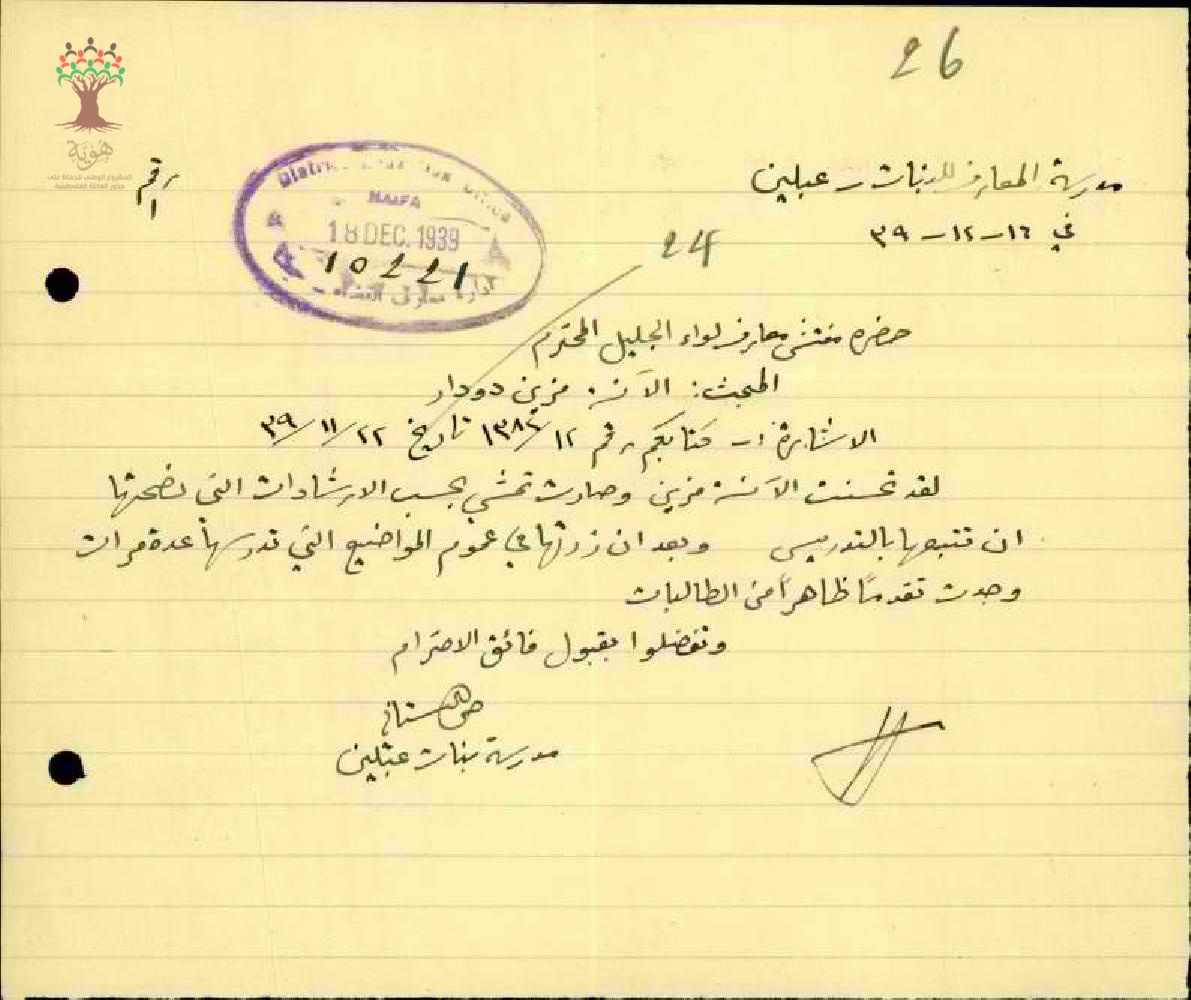 26
هوية
المشروع الوطني للحفاظ على
جذور العائلة الفلسطينية
رقم
District Education Office
HAIFA
18 DEC. 1939
10221
ادارة معارف القضاء
مدرسة المعارف للبنات - عبلين
في ١٦-١٢-٣٩
24
حضرة مفتش معارف لواء الجليل المحترم
المبحث: الآنسة مزين دودار
الاشارة :- كتابكم رقم ١٣٨٤/١٢ تاريخ ٢٢/١١/٣٩
لقد تحسنت الآنسة مزين وصارت تمشي بحسب الارشادات التي نصحتها
ان تتبعها بالتدريس وبعد ان زرتها في عموم المواضيع التي تدرسها عدة مرات
وجدت تقدماً ظاهراً من الطالبات
وتفضلوا بقبول فائق الاحترام
مدرسة بنات عبلين